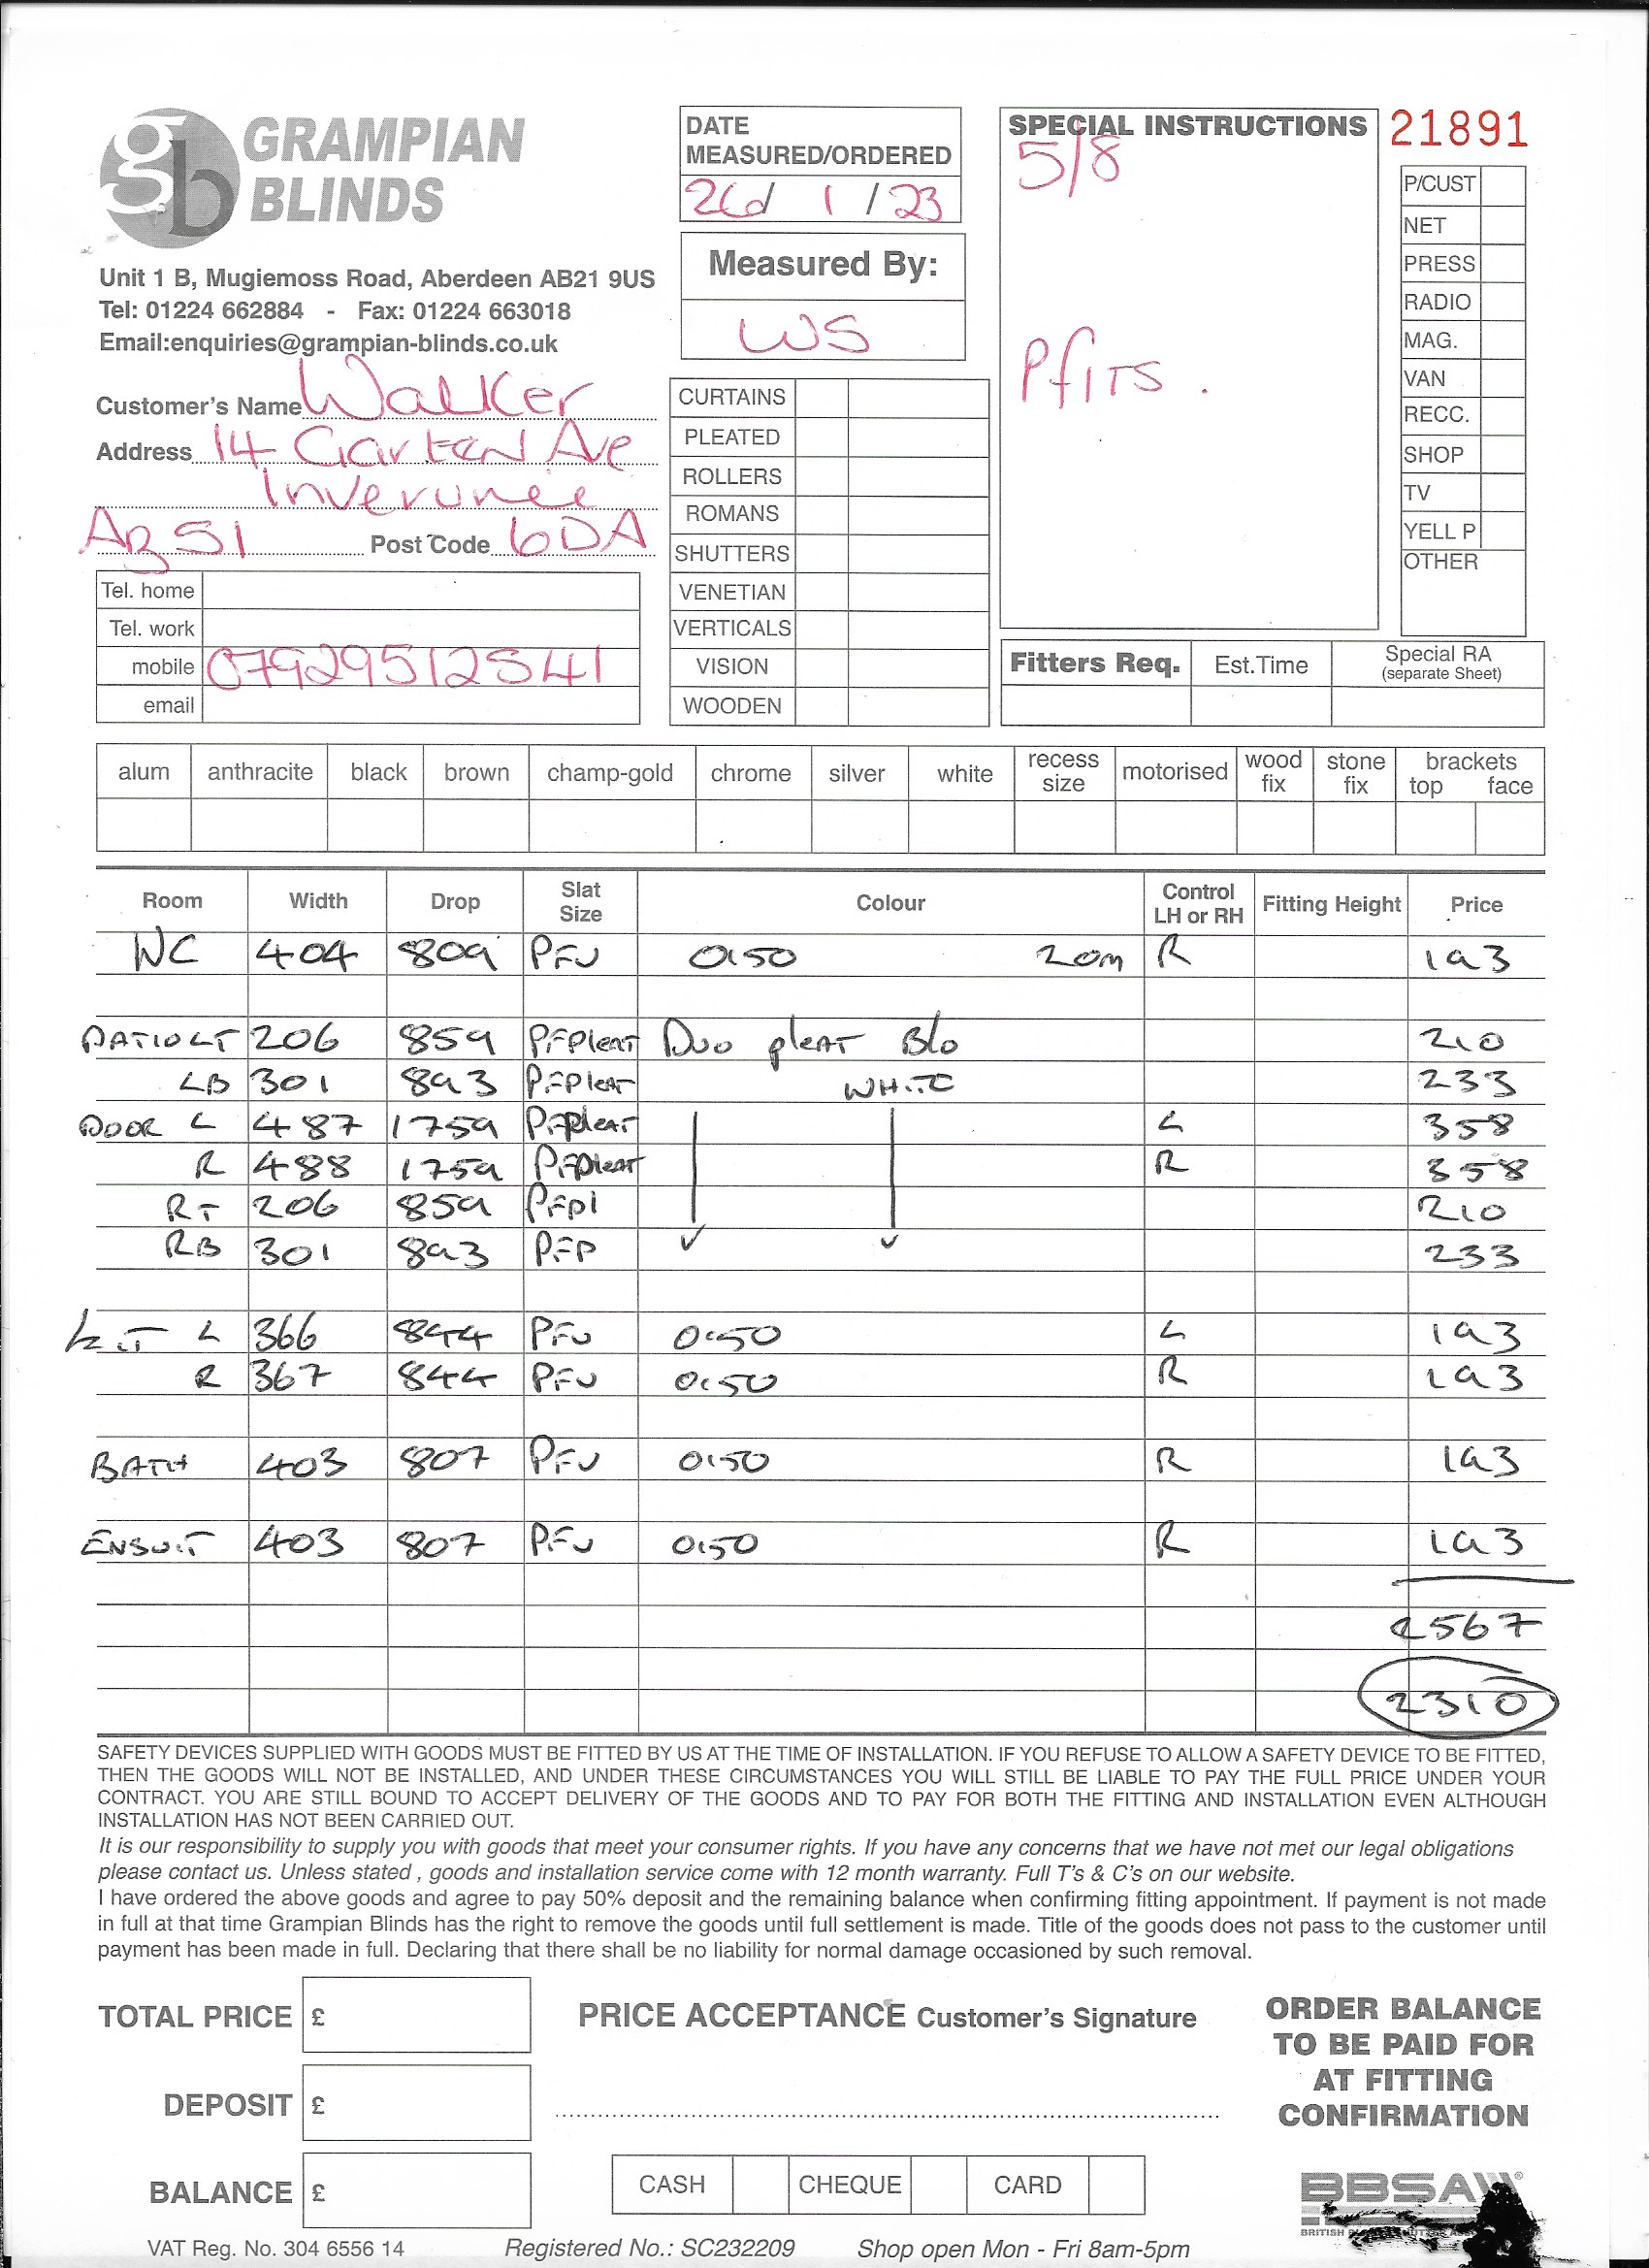 GRAMPIAN
BLINDS
Unit 1 B, Mugiemoss Road, Aberdeen AB21 9US
Tel: 01224 662884 - Fax: 01224 663018
Email:enquiries@grampian-blinds.co.uk
Customer's Name Walker
Address 14 Garten Ave
Inverurie
AB51 Post Code 6DA
Tel. home
Tel. work
mobile 07929512541
email
DATE
MEASURED/ORDERED
26/ 1 / 23
Measured By:
WS
CURTAINS
PLEATED
ROLLERS
ROMANS
SHUTTERS
VENETIAN
VERTICALS
VISION
WOODEN
SPECIAL INSTRUCTIONS
5/8
Pfits.
21891
P/CUST
NET
PRESS
RADIO
MAG.
VAN
RECC.
SHOP
TV
YELL P
OTHER
Fitters Req. Est.Time Special RA
(separate Sheet)
alum anthracite black brown champ-gold chrome silver white recess size motorised wood fix stone fix brackets top face
Room Width Drop Slat Size Colour Control LH or RH Fitting Height Price
WC 404 809 PFV 0150 20m R 193
PATIO LT 206 859 PFPleat Duo pleat Blo 210
LB 301 893 PFPleat WHITE 233
DOOR L 487 1759 PFPleat L 358
R 488 1759 PFPleat R 358
RT 206 859 PFPl 210
RB 301 893 PFP 233
KIT L 366 844 PFV 0150 L 193
R 367 844 PFV 0150 R 193
BATH 403 807 PFV 0150 R 193
ENSUIT 403 807 PFV 0150 R 193
2567
2310
SAFETY DEVICES SUPPLIED WITH GOODS MUST BE FITTED BY US AT THE TIME OF INSTALLATION. IF YOU REFUSE TO ALLOW A SAFETY DEVICE TO BE FITTED,
THEN THE GOODS WILL NOT BE INSTALLED, AND UNDER THESE CIRCUMSTANCES YOU WILL STILL BE LIABLE TO PAY THE FULL PRICE UNDER YOUR
CONTRACT. YOU ARE STILL BOUND TO ACCEPT DELIVERY OF THE GOODS AND TO PAY FOR BOTH THE FITTING AND INSTALLATION EVEN ALTHOUGH
INSTALLATION HAS NOT BEEN CARRIED OUT.
It is our responsibility to supply you with goods that meet your consumer rights. If you have any concerns that we have not met our legal obligations
please contact us. Unless stated , goods and installation service come with 12 month warranty. Full T's & C's on our website.
I have ordered the above goods and agree to pay 50% deposit and the remaining balance when confirming fitting appointment. If payment is not made
in full at that time Grampian Blinds has the right to remove the goods until full settlement is made. Title of the goods does not pass to the customer until
payment has been made in full. Declaring that there shall be no liability for normal damage occasioned by such removal.
TOTAL PRICE £
DEPOSIT £
BALANCE £
PRICE ACCEPTANCE Customer's Signature
CASH CHEQUE CARD
ORDER BALANCE
TO BE PAID FOR
AT FITTING
CONFIRMATION
BBSA
BRITISH
VAT Reg. No. 304 6556 14 Registered No.: SC232209 Shop open Mon - Fri 8am-5pm